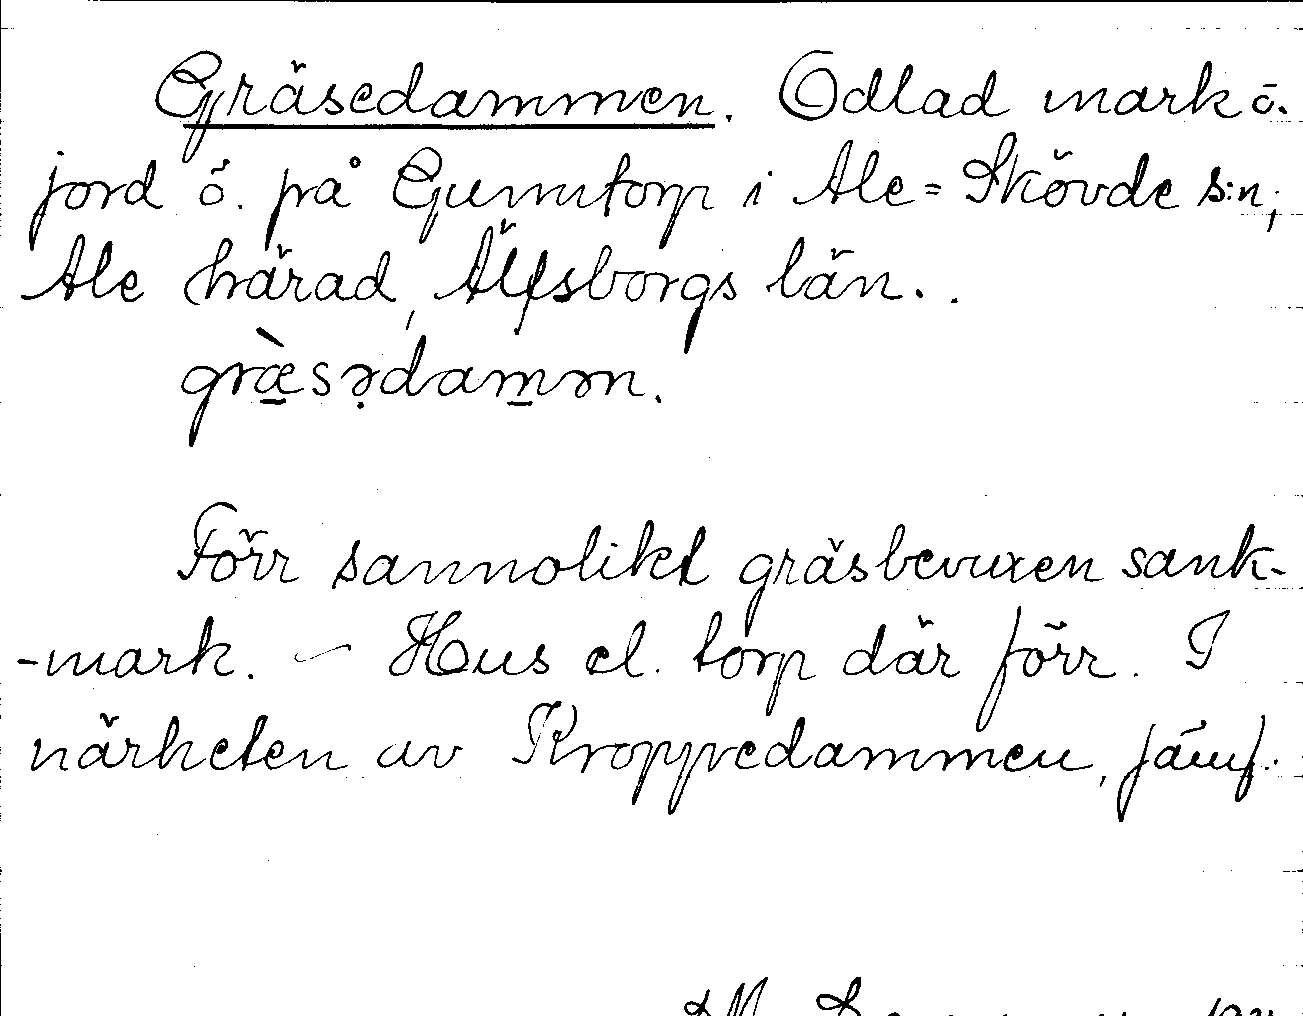 Gräsedammen. Odlad mark o.
jord ö. på Gunntorp i Ale=Skövde s:n,
Ale härad, Älfsborgs län..
græ̀sədamən.
Förr sannolikt gräsbevuxen sank-
-mark. – Hus el. torp där förr. I
närheten av Kroppedammen, jämf.